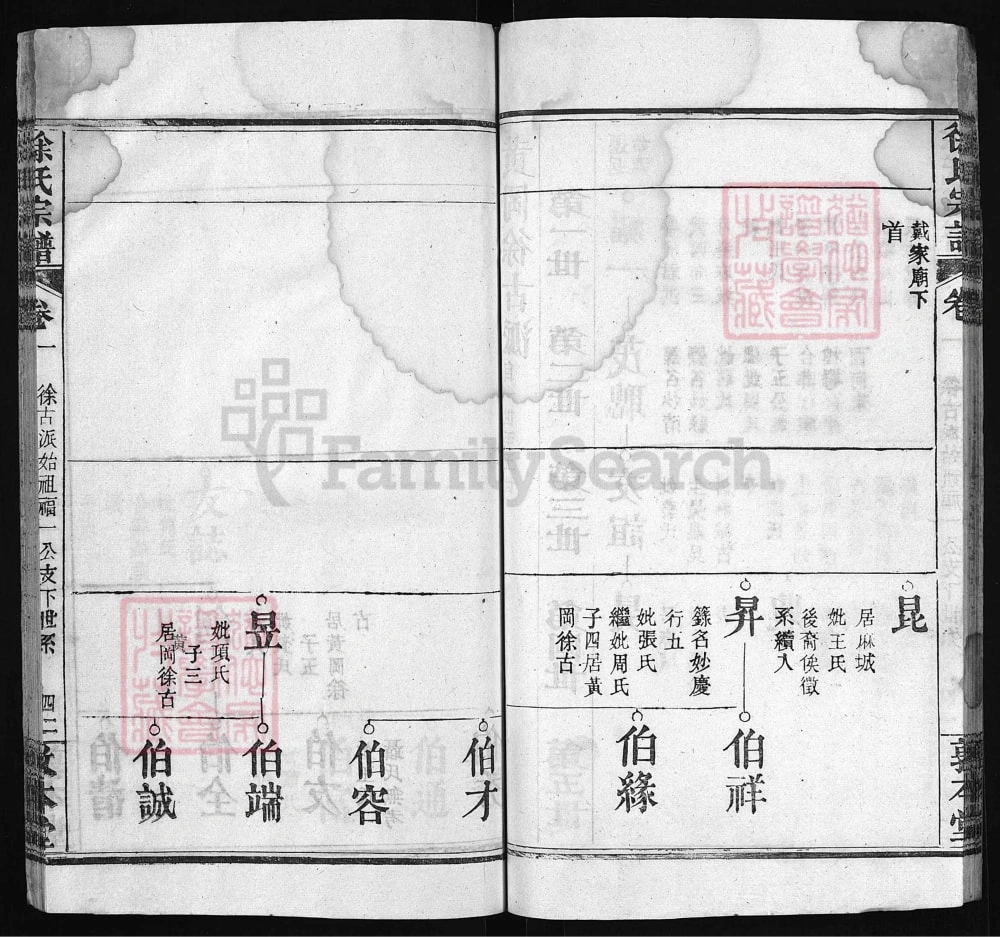 徐氏宗譜
卷一
戴家廟下
首
昆
居麻城
妣王氏
後裔俟徵
系續入
昇
籙名妙慶
行五
妣張氏
繼妣周氏
子四居黃
岡徐古
伯祥
伯緣
敦本堂
伯才
伯容
昱
妣項氏
子三
居黃岡徐古
伯端
伯誠
徐氏宗譜
卷一
徐古派始祖福一公支下世系
四二
敦本堂
FamilySearch